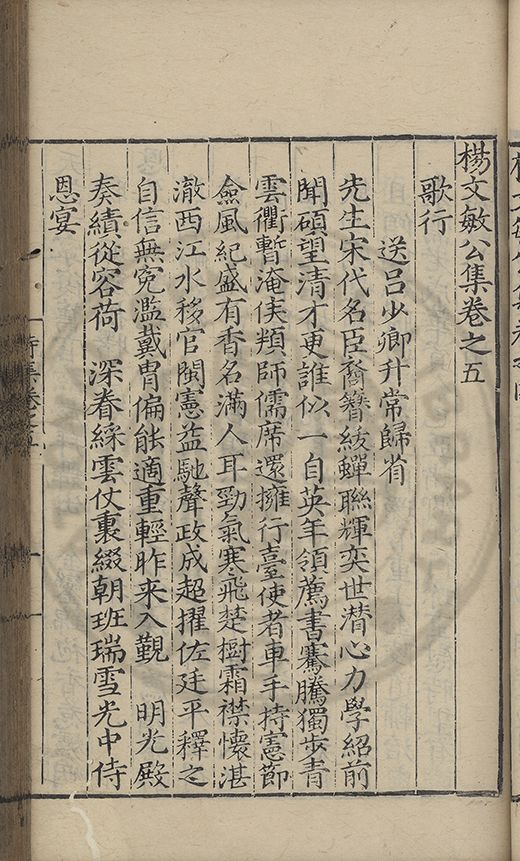 楊文敏公集卷之五
歌行
送吕少卿升常歸省
先生宋代名臣裔簪紱蟬聯輝奕世潛心力學紹前
聞碩望清才更誰似一自英年領薦書騫騰獨步青
雲衢暫淹侯頖師儒席還擁行臺使者車手持憲節
僉風紀盛有香名滿人耳勁氣寒飛楚樹霜襟懷湛
澈西江水移官閩憲益馳聲政成超擢佐廷平釋之
自信無冤濫戴胄偏能適重輕昨来入覲　明光殿
奏績從容荷　深眷綵雲仗裏綴朝班瑞雪光中侍
恩宴